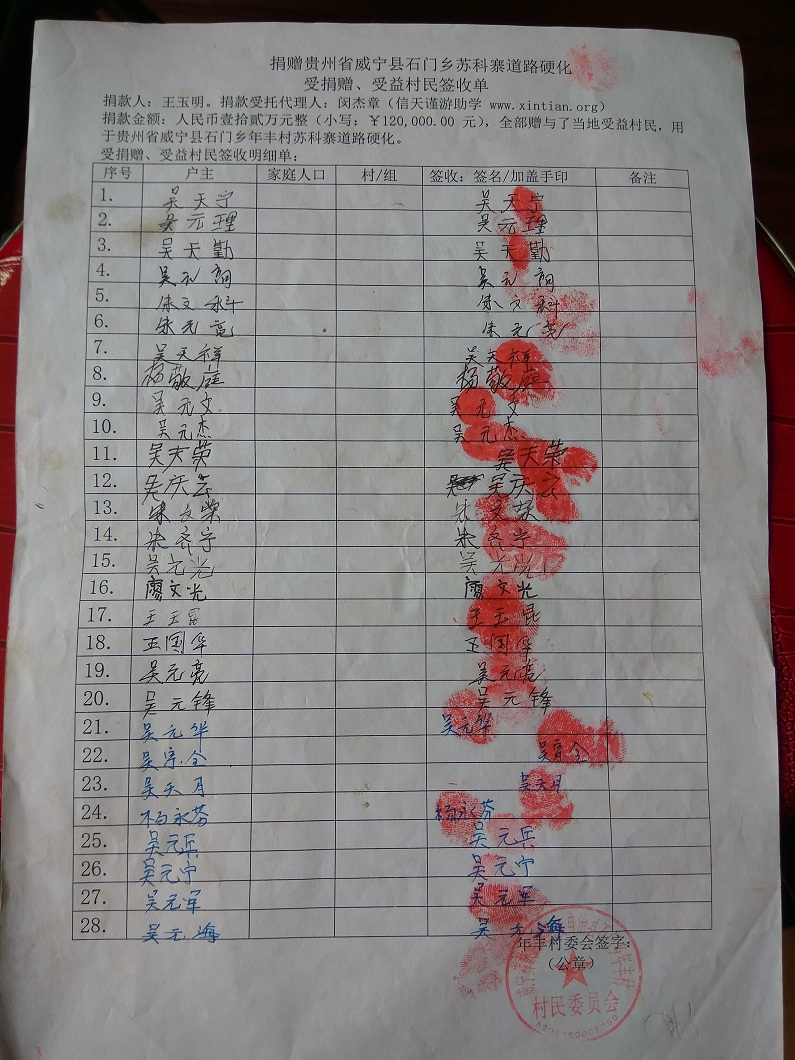 捐赠贵州省威宁县石门乡苏科寨道路硬化
受捐赠、受益村民签收单
捐款人：王玉明。捐款受托代理人：闵杰章（信天谨游助学 www.xintian.org）
捐款金额：人民币壹拾贰万元整（小写：￥120,000.00 元），全部赠与了当地受益村民，用
于贵州省威宁县石门乡年丰村苏科寨道路硬化。
受捐赠、受益村民签收明细单：
序号 户主 家庭人口 村/组 签收：签名/加盖手印 备注
1. 吴天宁 吴天宁
2. 吴元理 吴元理
3. 吴天勤 吴天勤
4. 吴元朗 吴元朗
5. 朱文科 朱文科
6. 朱元亮 朱元亮
7. 吴天祥 吴天祥
8. 杨敬庭 杨敬庭
9. 吴元文 吴元文
10. 吴元杰 吴元杰
11. 吴天荣 吴天荣
12. 吴庆云 吴庆云
13. 朱文荣 朱文荣
14. 朱齐宇 朱齐宇
15. 吴元光 吴元光
16. 廖文光 廖文光
17. 王玉昆 王玉昆
18. 王国华 王国华
19. 吴元亮 吴元亮
20. 吴元锋 吴元锋
21. 吴元华 吴元华
22. 吴 全 吴 全
23. 吴天月 吴天月
24. 杨永芬 杨永芬
25. 吴元兵 吴元兵
26. 吴元宁 吴元宁
27. 吴元军 吴元军
28. 吴元海 吴元海
年丰村委会签字：
（公章）
村民委员会